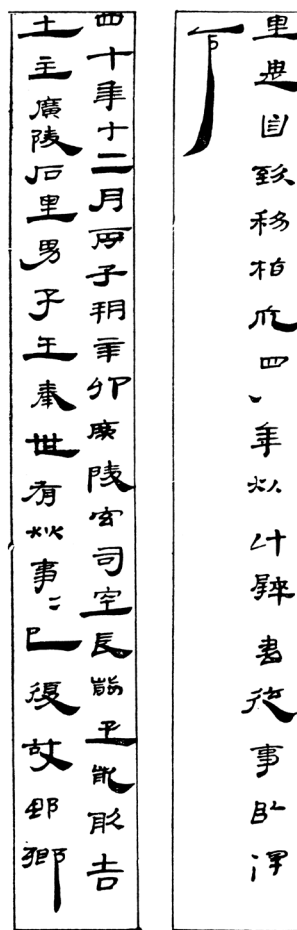 四十年十二月丙子朔辛卯廣陵宮司空長前丞能敢告
土主廣陵石里男子王奉世有獄事〓已復故郡鄉
里遣自致移栺穴四八年獄計辟書從事如律
令